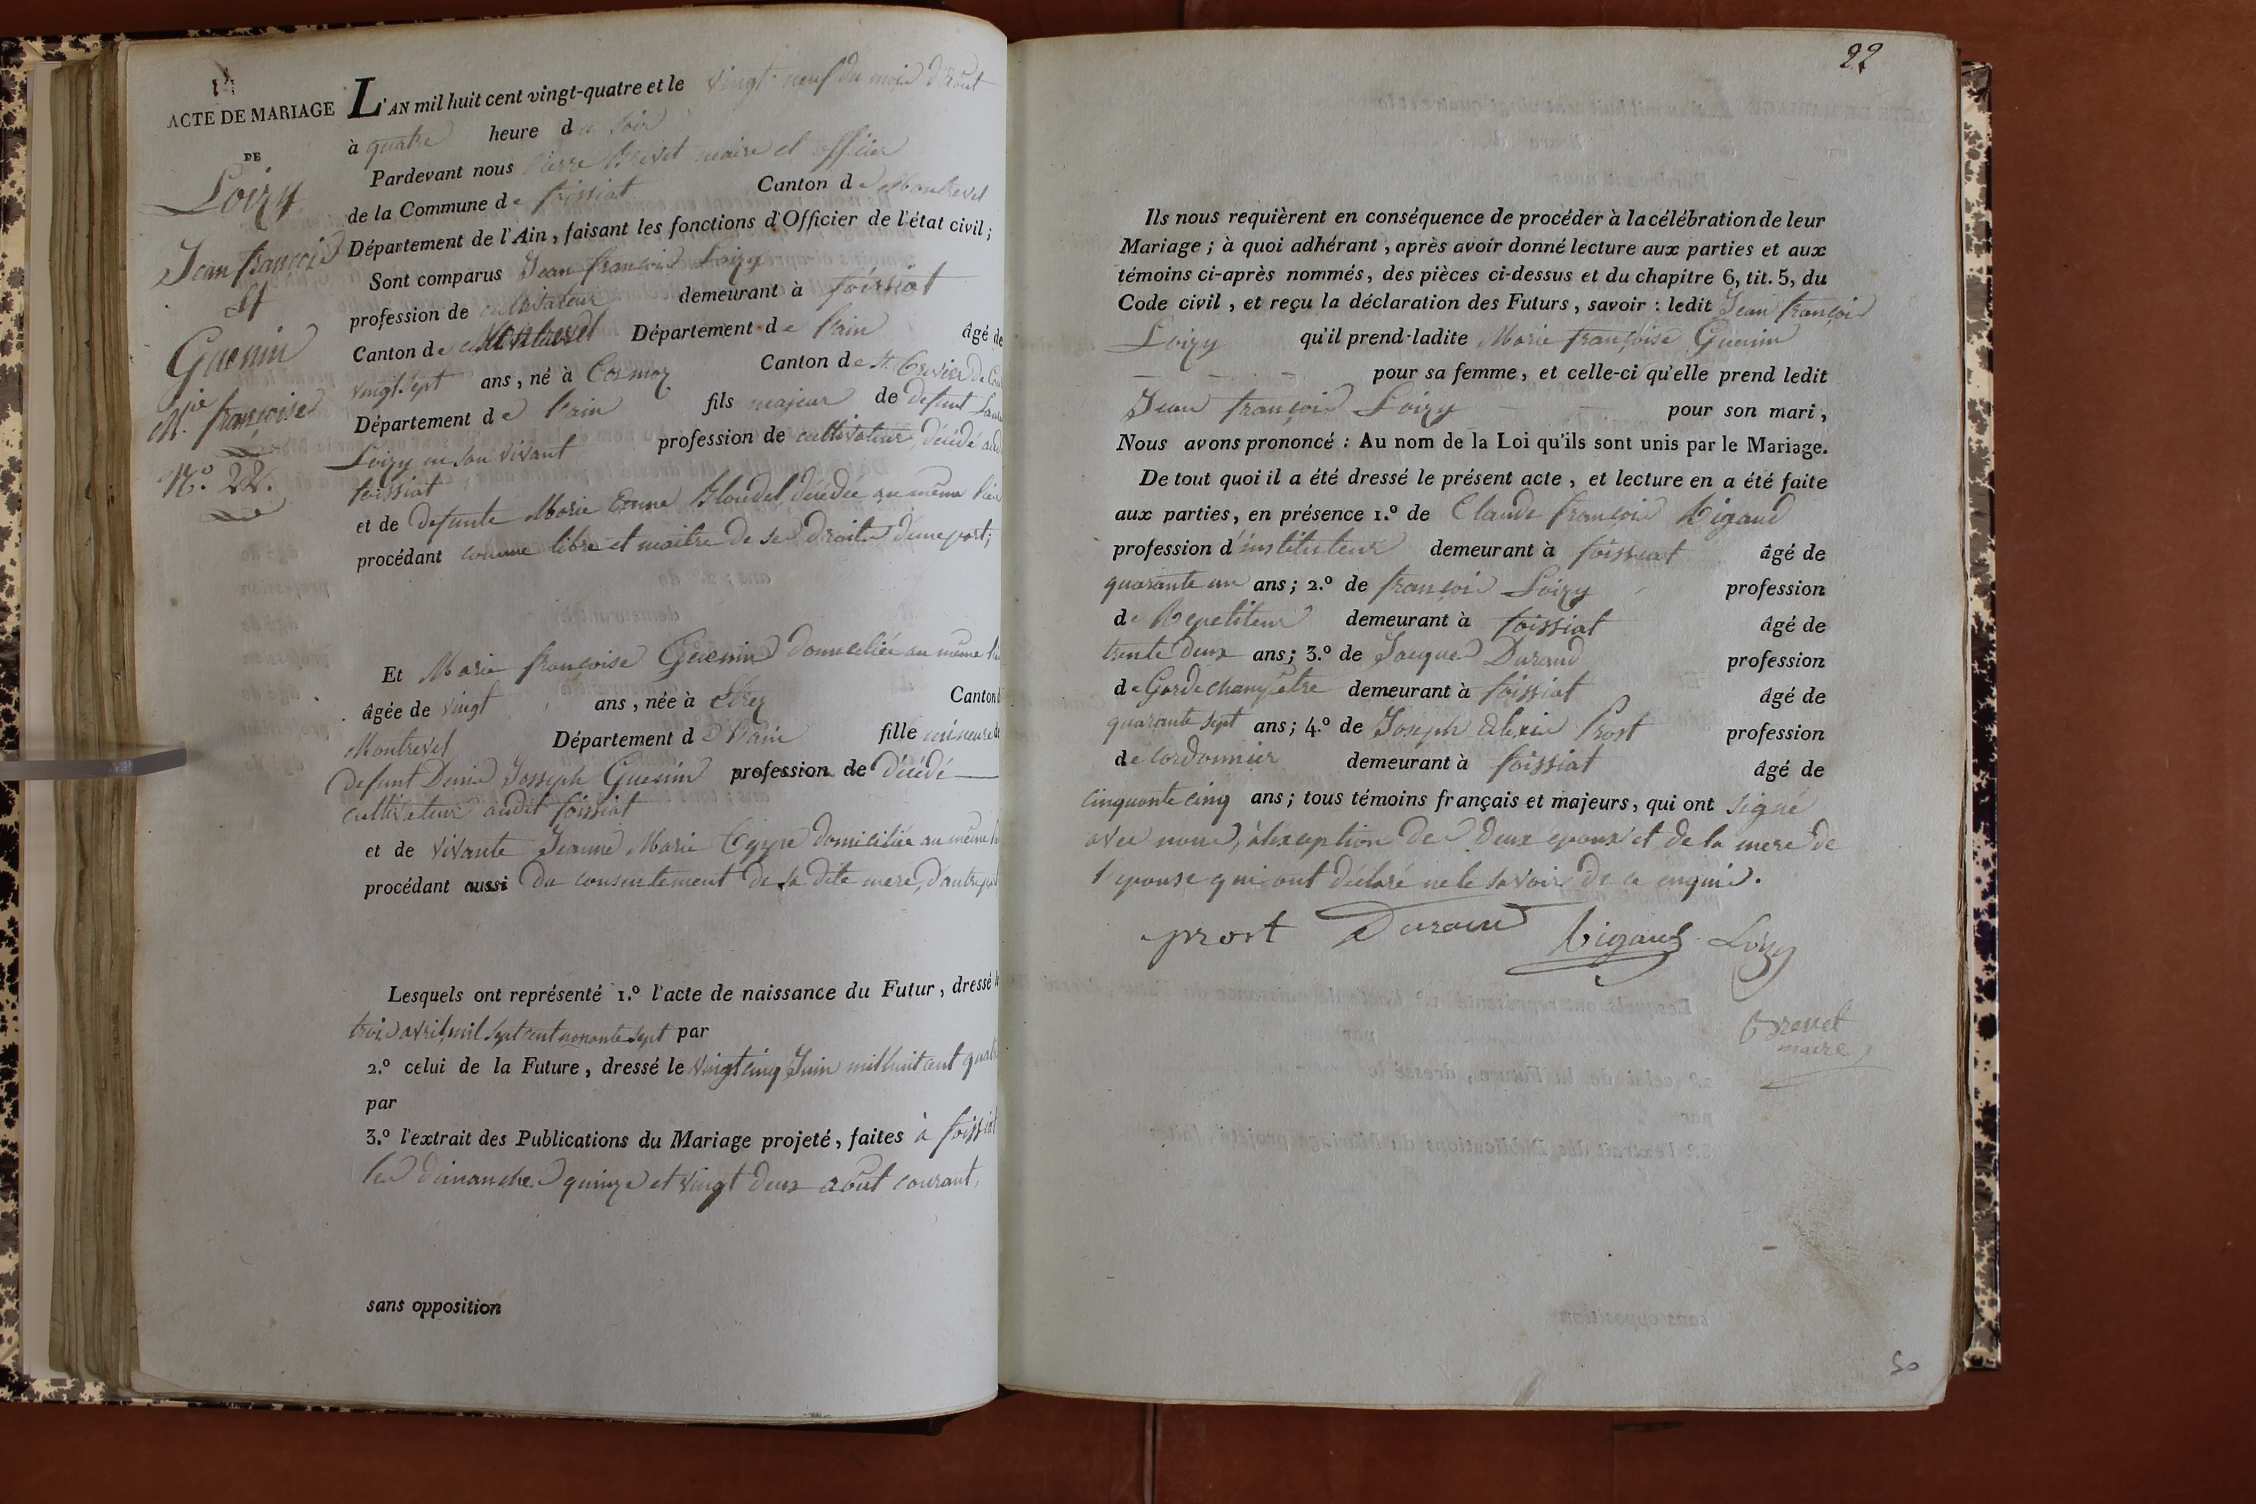 ACTE DE MARIAGE
DE
Loizy
Jean françois
Et
Guenin
M.ie françoise
N.o 22.
L'AN mil huit cent vingt-quatre et le vingt-neuf du mois d'août
à quatre heure du soir
Pardevant nous Pierre Brevet maire et officier
de la Commune de foissiat Canton de Montrevel
Département de l'Ain, faisant les fonctions d'Officier de l'état civil;
Sont comparus Jean françois Loizy
profession de cultivateur demeurant à foissiat
Canton de Montrevel Département de l'ain âgé de
vingt-sept ans, né à Cormoz Canton de St. Trivier de Cour
Département de l'ain fils majeur de defunt
Loizy en son vivant profession de cultivateur décédé audit
foissiat
et de defunte Marie Blondel décédée au même lieu
procédant comme libre et maître de ses droits d'une part;
Et Marie françoise Guenin domiciliée au même lieu
âgée de vingt ans, née à Etrez Canton de
Montrevel Département de l'ain fille mineure de
defunt Denis Josseph Guenin profession de décédé
cultivateur audit foissiat
et de vivante Jeanne Marie domiciliée au même lieu
procédant aussi du consentement de sa dite mere, d'autre part
Lesquels ont représenté 1.º l'acte de naissance du Futur, dressé le
trois avril mil sept cent nonante sept par
2.º celui de la Future, dressé le vingt cinq Juin mil huit cent quatre
par
3.º l'extrait des Publications du Mariage projeté, faites à foissiat
les dimanches quinze et vingt deux août courant,
sans opposition
22
Ils nous requièrent en conséquence de procéder à la célébration de leur
Mariage; à quoi adhérant, après avoir donné lecture aux parties et aux
témoins ci-après nommés, des pièces ci-dessus et du chapitre 6, tit. 5, du
Code civil, et reçu la déclaration des Futurs, savoir: ledit Jean françois
Loizy qu'il prend ladite Marie françoise Guenin
pour sa femme, et celle-ci qu'elle prend ledit
Jean françois Loizy pour son mari,
Nous avons prononcé: Au nom de la Loi qu'ils sont unis par le Mariage.
De tout quoi il a été dressé le présent acte, et lecture en a été faite
aux parties, en présence 1.º de Claude françois Rigaud
profession d'instituteur demeurant à foissiat âgé de
quarante un ans; 2.º de françois Loizy profession
de Repetiteur demeurant à foissiat âgé de
trente deux ans; 3.º de Jacques Durand profession
de Garde champêtre demeurant à foissiat âgé de
quarante sept ans; 4.º de Joseph alexis Prost profession
de cordonnier demeurant à foissiat âgé de
cinquante cinq ans; tous témoins français et majeurs, qui ont signé
avec nous, à l'exception des deux epoux et de la mere de
l'epouse qui ont déclaré ne le savoir de ce enquis.
prost Durand Rigaud Loizy
Brevet
maire
50